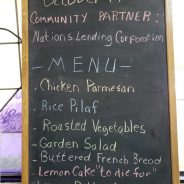 COMMUNITY PARTNER:
Nations Lending Corporation
- MENU -
. Chicken Parmesan
. Rice Pilaf
. Roasted Vegetables
- Garden Salad
- Buttered French Bread
. Lemon Cake "to die for"